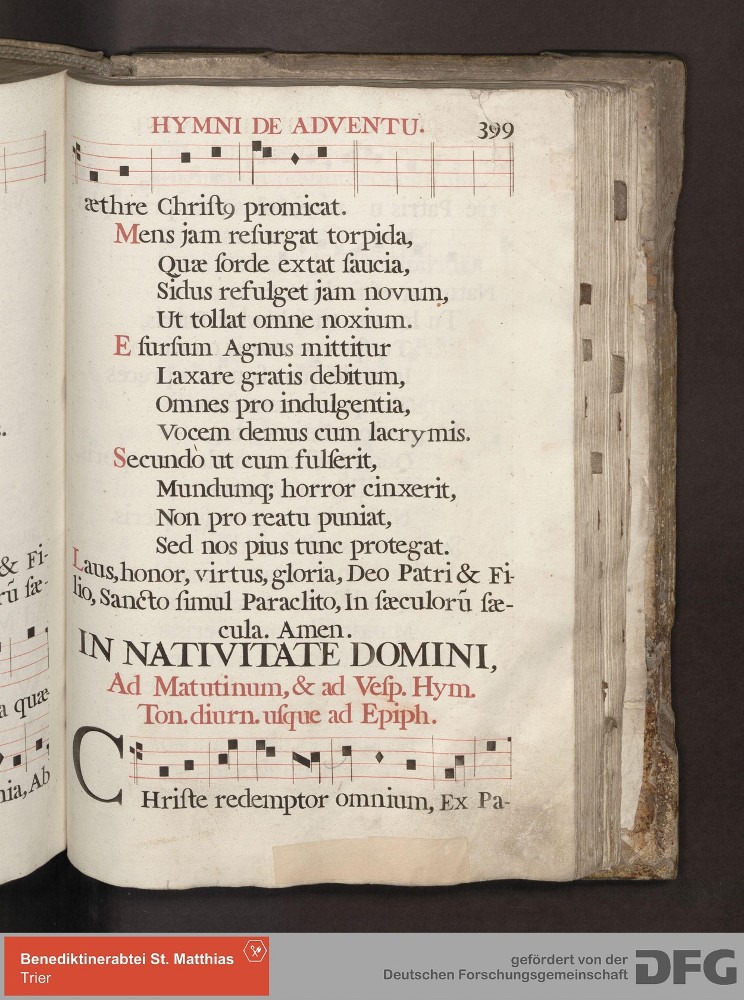 HYMNI DE ADVENTU. 399
æthre Chriſtꝯ promicat.
Mens jam reſurgat torpida,
Quæ ſorde extat ſaucia,
Sidus refulget jam novum,
Ut tollat omne noxium.
E ſurſum Agnus mittitur
Laxare gratis debitum,
Omnes pro indulgentia,
Vocem demus cum lacrymis.
Secundò ut cum fulſerit,
Mundumq; horror cinxerit,
Non pro reatu puniat,
Sed nos pius tunc protegat.
Laus, honor, virtus, gloria, Deo Patri & Fi-
lio, Sancto ſimul Paraclito, In ſæculorũ ſæ-
cula. Amen.
IN NATIVITATE DOMINI,
Ad Matutinum, & ad Veſp. Hym.
Ton. diurn. uſque ad Epiph.
CHriſte redemptor omnium, Ex Pa-
& Fi-
rũ ſæ-
a quæ
nia, Ab
Benediktinerabtei St. Matthias
Trier
gefördert von der
Deutschen Forschungsgemeinschaft
DFG